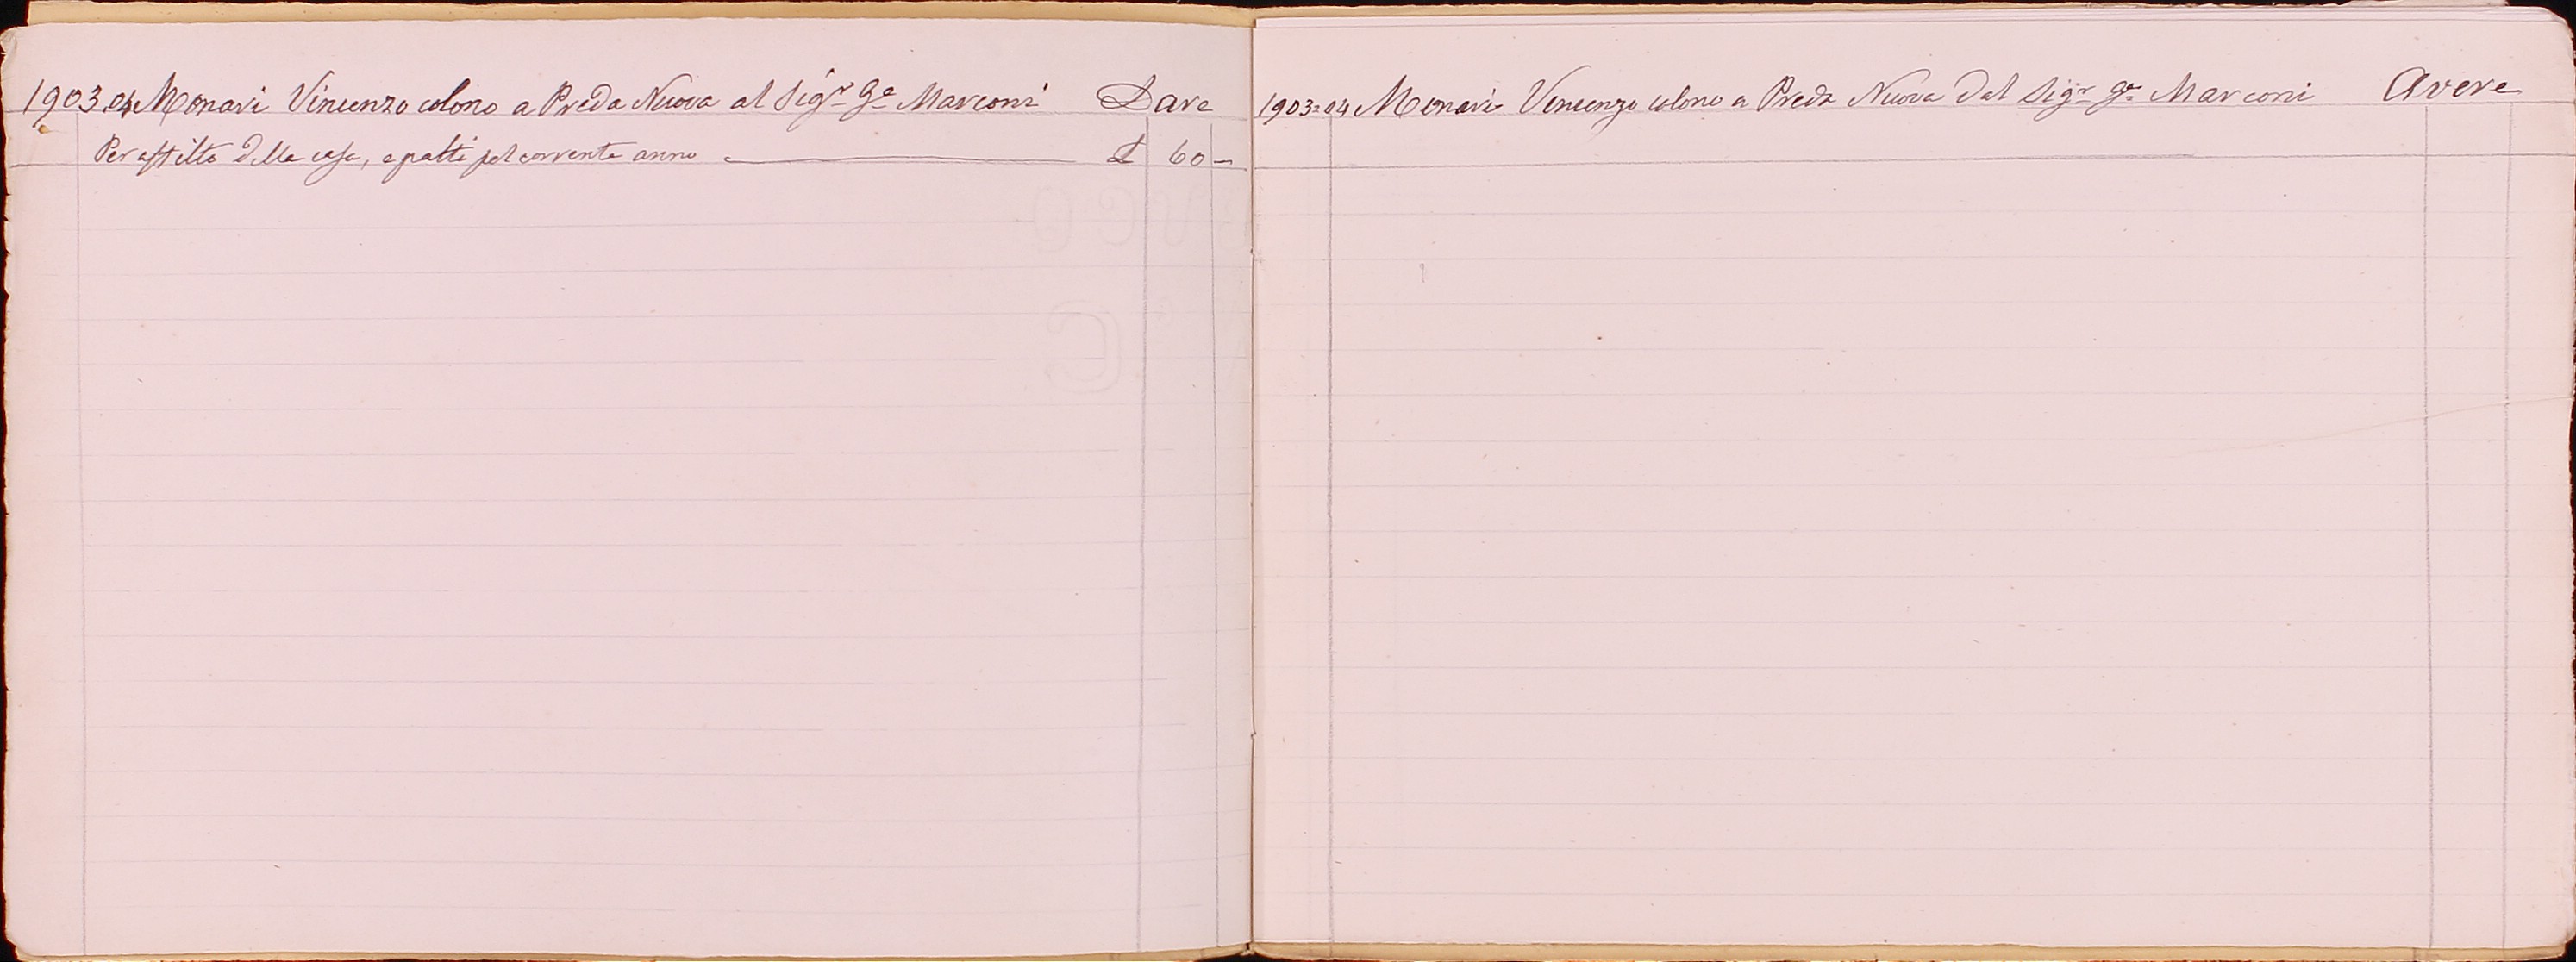 1903.04 Monari Vincenzo colono a Preda Nuova al Sigr Ge Marconi Dare
Per affitto della casa, e patti pel corrente anno £ 60 –
1903=04 Monari Vincenzo colono a Preda Nuova dal Sigr Ge Marconi Avere